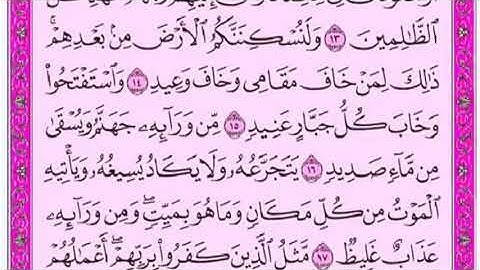 ٱلظَّٰلِمِينَ ١٣ وَلَنُسْكِنَنَّكُمُ ٱلْأَرْضَ مِنۢ بَعْدِهِمْ ۚ
ذَٰلِكَ لِمَنْ خَافَ مَقَامِى وَخَافَ وَعِيدِ ١٤ وَٱسْتَفْتَحُوا۟
وَخَابَ كُلُّ جَبَّارٍ عَنِيدٍ ١٥ مِّن وَرَآئِهِۦ جَهَنَّمُ وَيُسْقَىٰ
مِن مَّآءٍ صَدِيدٍ ١٦ يَتَجَرَّعُهُۥ وَلَا يَكَادُ يُسِيغُهُۥ وَيَأْتِيهِ
ٱلْمَوْتُ مِن كُلِّ مَكَانٍ وَمَا هُوَ بِمَيِّتٍ ۖ وَمِن وَرَآئِهِۦ
عَذَابٌ غَلِيظٌ ١٧ مَّثَلُ ٱلَّذِينَ كَفَرُوا۟ بِرَبِّهِمْ ۖ أَعْمَٰلُهُمْ